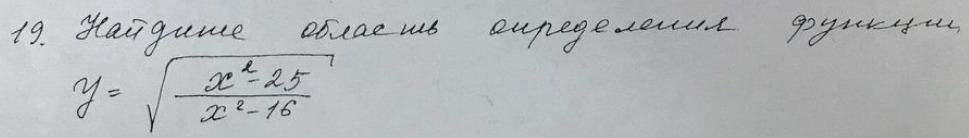 19. Найдите область определения функции
y = √((x² - 25)/(x² - 16))